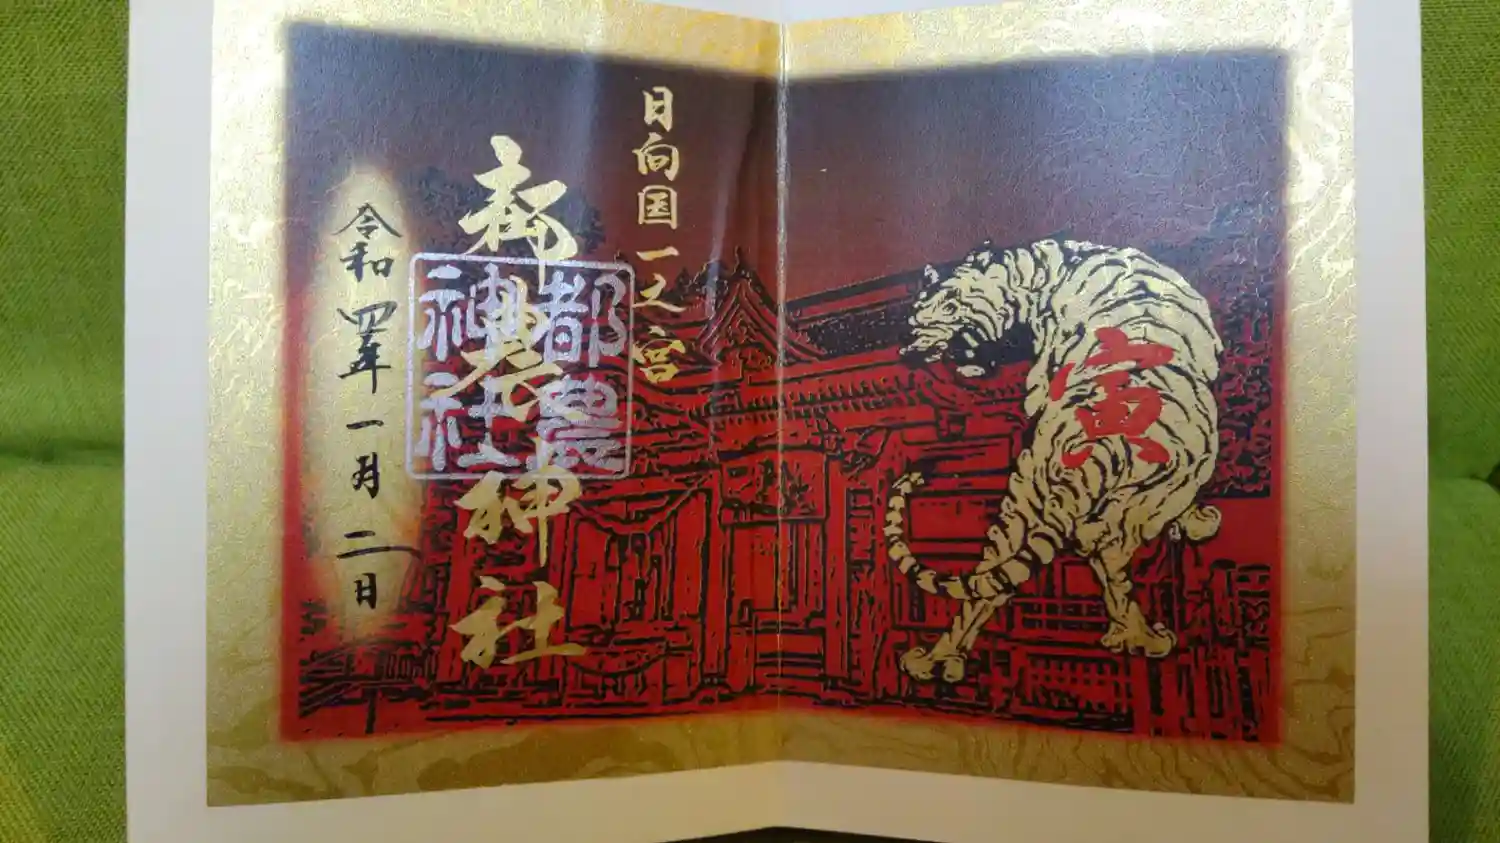 日向国一之宮
都農神社
都農
神社
令和四年一月二日
寅